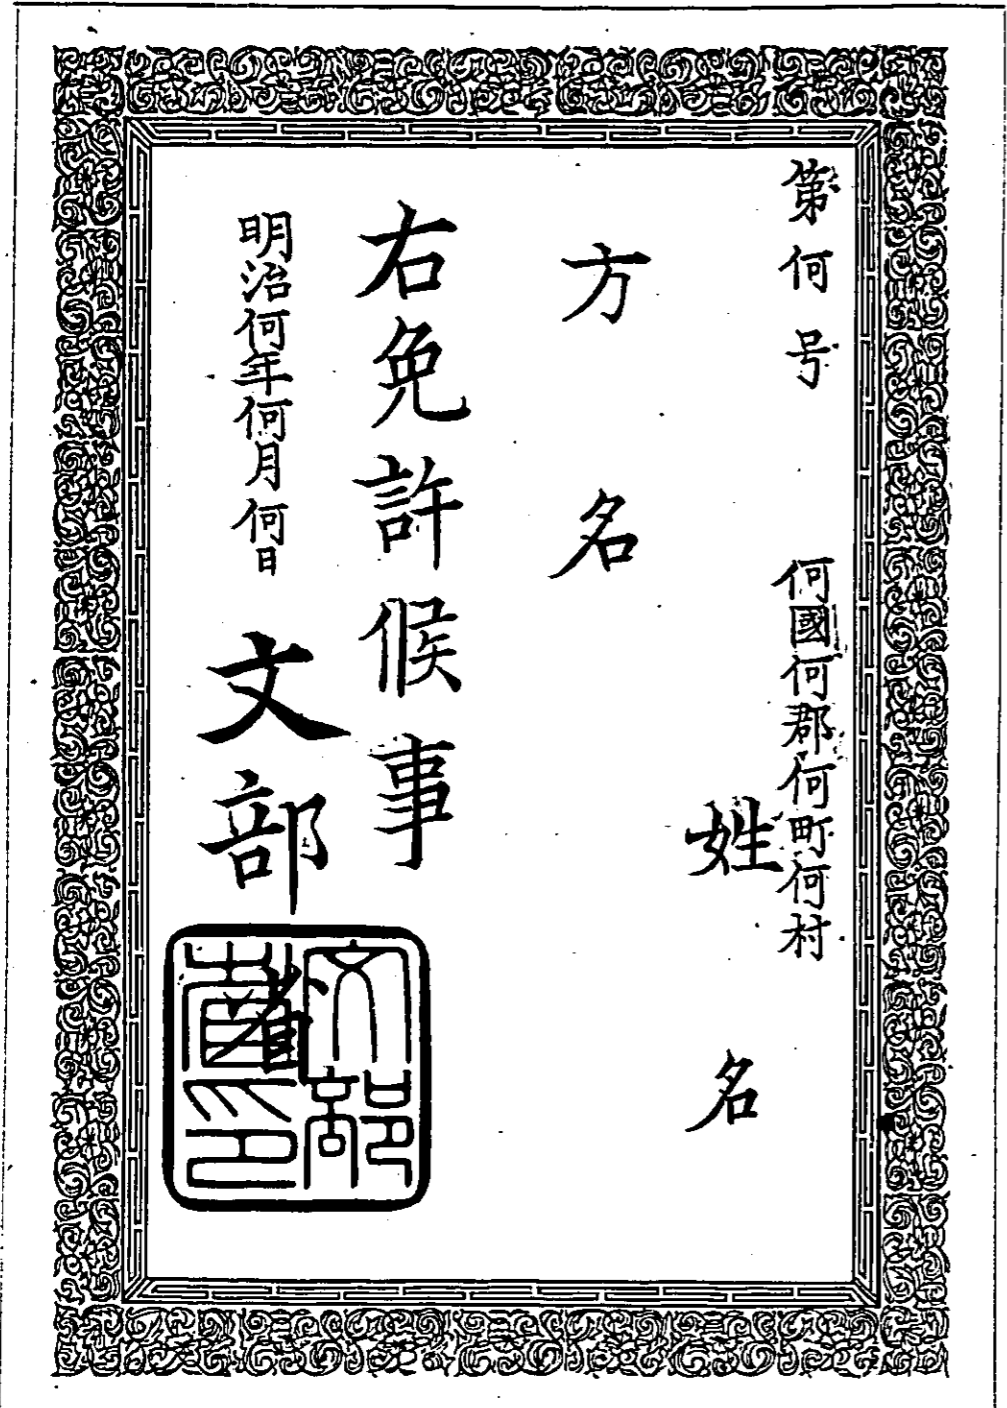 第何号 何國何郡何町何村
姓名
方名
右免許候事
明治何年何月何日 文部省
文部省印